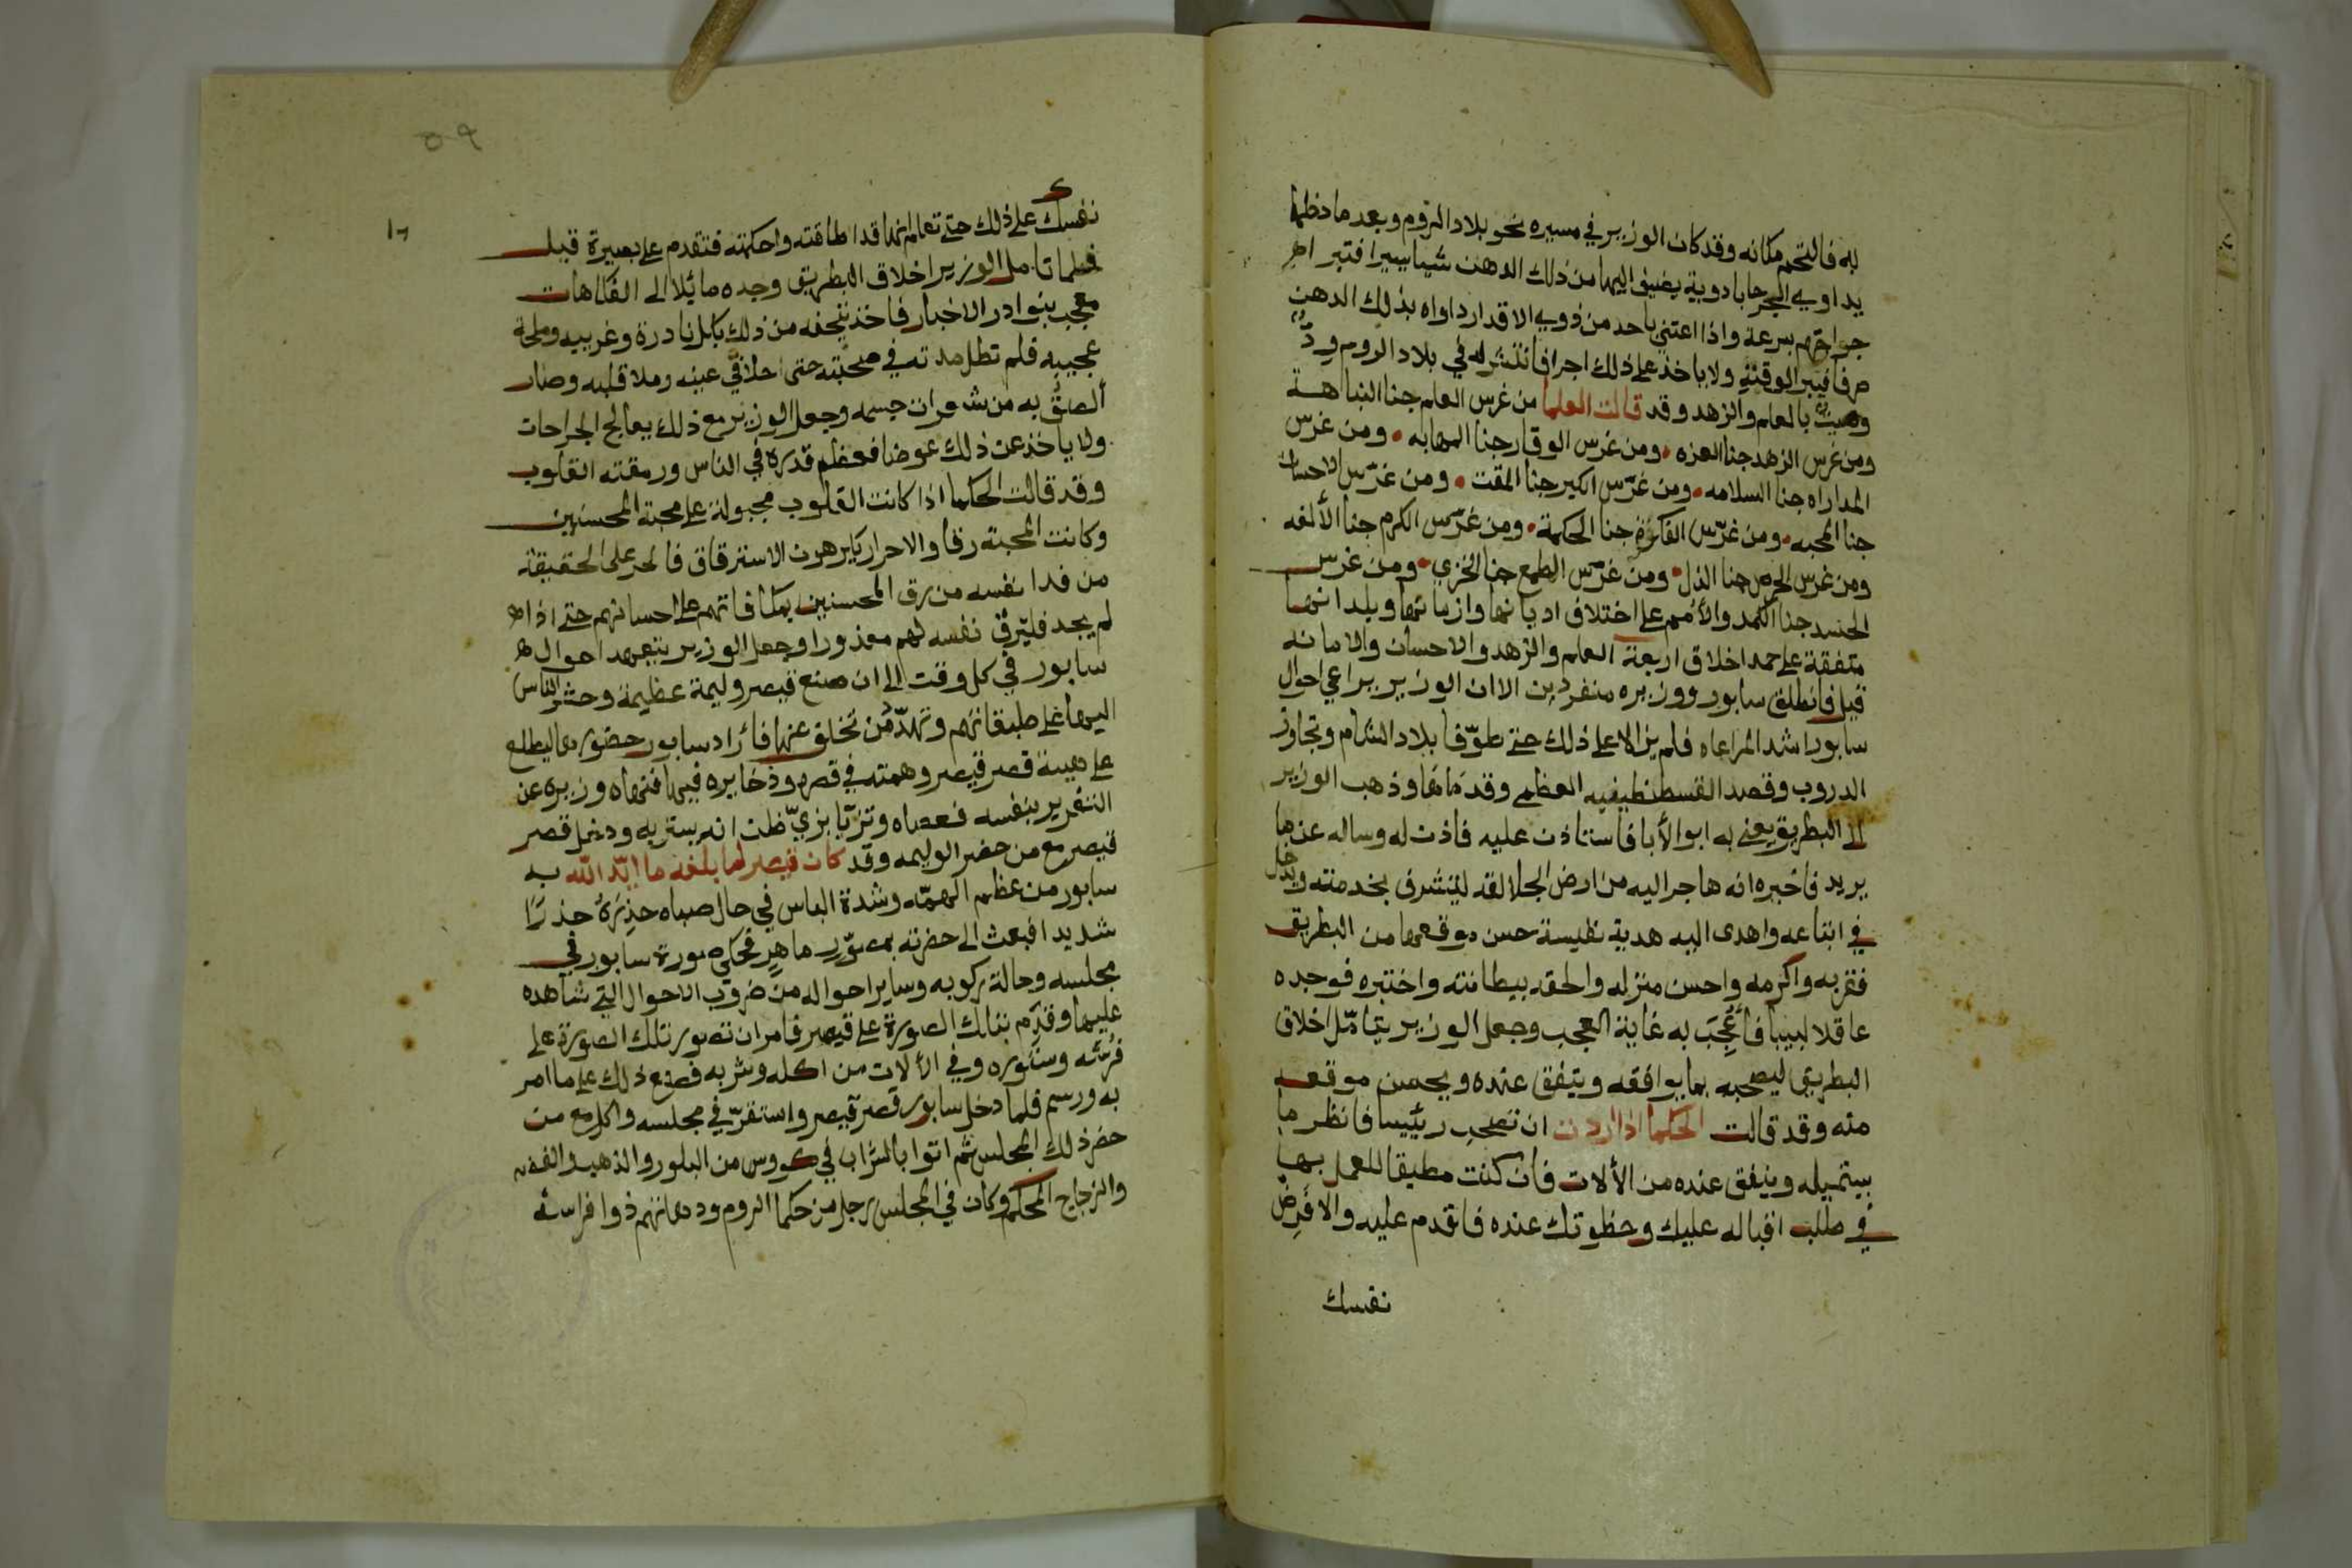 به فالتحم مكانه وقد كان الوزير في مسيره نحو بلاد الروم وبعد ما دخلها
يداوي الجرحا بادوية يضيف اليها من ذلك الدهن شيا يسيرا فتبرا
جراحهم بسرعة واذا اعتنى باحد من ذوي الاقدار داواه بذلك الدهن
صرفا فيبرا لوقته ولا ياخذ على ذلك اجرا فانتشر له في بلاد الروم
وصيت بالعلم والزهد وقد قالت العلما من غرس العلم جنا النباهة
ومن غرس الزهد جنا العزه ٠ ومن غرس الوقار جنا المهابه ٠ ومن غرس
المداراه جنا السلامه ٠ ومن غرّس الكبر جنا المقت ٠ ومن غرّس الاحسان
جنا المحبه ٠ ومن غرّس الفكرة جنا الحكمة ٠ ومن غرّس الكرم جنا الألفه
ومن غرس الحرص جنا الذل ٠ ومن غرّس الطمع جنا الخزي ٠ ومن غرس
الحسد جنا الكمد والأمم على اختلاف اديانها وازمانها وبلدانها
متفقة على حمد اخلاق اربعة العلم والزهد والاحسان والامانه
قيل فانطلق سابور ووزيره منفردين الا ان الوزير يراعي احوال
سابور اشد المراعاه فلم يزالا على ذلك حتى طوّفا بلاد الشام وتجاوز
الدروب وقصد القسطنطينيه العظمى وقدماها وذهب الوزير
الى البطريق يعني به ابو الأبا فاستاذن عليه فاذن له وساله عن ما
يريد فاخبره انه هاجر اليه من ارض الجلالقه ليتشرف بخدمته ويدخل
في اتباعه واهدى اليه هدية نفيسة حسن موقعها من البطريق
فقربه واكرمه واحسن منزله والحقه ببطانته واختبره فوجده
عاقلا لبيبا فأعجب به غاية العجب وجعل الوزير يتامّل اخلاق
البطريق ليصحبه بما يوافقه ويتفق عنده ويحسن موقعه
منه وقد قالت الحكما اذا اردت ان تصحب رئيسا فانظر ما
يستميله وينفق عنده من الألات فان كنت مطيقا للعمل بها
في طلب اقباله عليك وحظوتك عنده فاقدم عليه والا فرض
نفسك
٥٩
نفسك على ذلك حتى تعلم انها قد اطاقته واحكمته فتقدم على بصيرة قيل
فلما تامل الوزير اخلاق البطريق وجده مائلا الى الفكاهات
معجب بنوادر الاخبار فاخذ يتحفه من ذلك بكل نادرة وغريبه وملحة
عجيبه فلم تطل مدته في صحبته حتى احلا في عينه وملا قلبه وصار
ألصق به من شعرات جسمه وجعل الوزير مع ذلك يعالج الجراحات
ولا ياخذ عن ذلك عوضا فعظم قدره في الناس ورمقته القلوب
وقد قالت الحكما اذا كانت القلوب مجبولة على محبة المحسنين
وكانت المحبة رقا والاحرار يكرهون الاسترقاق فالحر على الحقيقة
من فدا نفسه من رق المحسنين بمكافاتهم على احسانهم حتى اذا
لم يجد فليرق نفسه لهم معذورا وجعل الوزير يتعهد احوال
سابور في كل وقت الى ان صنع قيصر وليمة عظيمة وحشر الناس
اليها على طبقاتهم وتهدّد من تخلف عنها فأراد سابور حضورها ليطلع
على هيئة قصر قيصر وهمته في قصره وذخايره فيها فنهاه وزيره عن
التغرير بنفسه فعصاه وتزيّا بزيّ ظن انه يستر به ودخل قصر
قيصر مع من حضر الوليمه وقد كان قيصر لما بلغه ما ايّد الله به
سابور من عظم الهمّه وشدة الباس في حال صباه حذره حذرًا
شديدا فبعث الى حضرته بمصوّر ماهر فحكى صورة سابور في
مجلسه وحالة ركوبه وساير احواله من ضروب الاحوال التي شاهده
عليها وقدّم بتلك الصورة على قيصر فامر ان تصور تلك الصورة على
فرشه وستوره وفي الألات من اكله وشربه فصنع ذلك على ما امر
به ورسم فلما دخل سابور قصر قيصر واستقرّ في مجلسه واكل مع من
حضر ذلك المجلس ثم اتوا بالشراب في كووس من البلور والذهب والفضه
والزجاج المحكم وكان في المجلس رجل من حكما الروم ودهاتهم ذوا فراسة